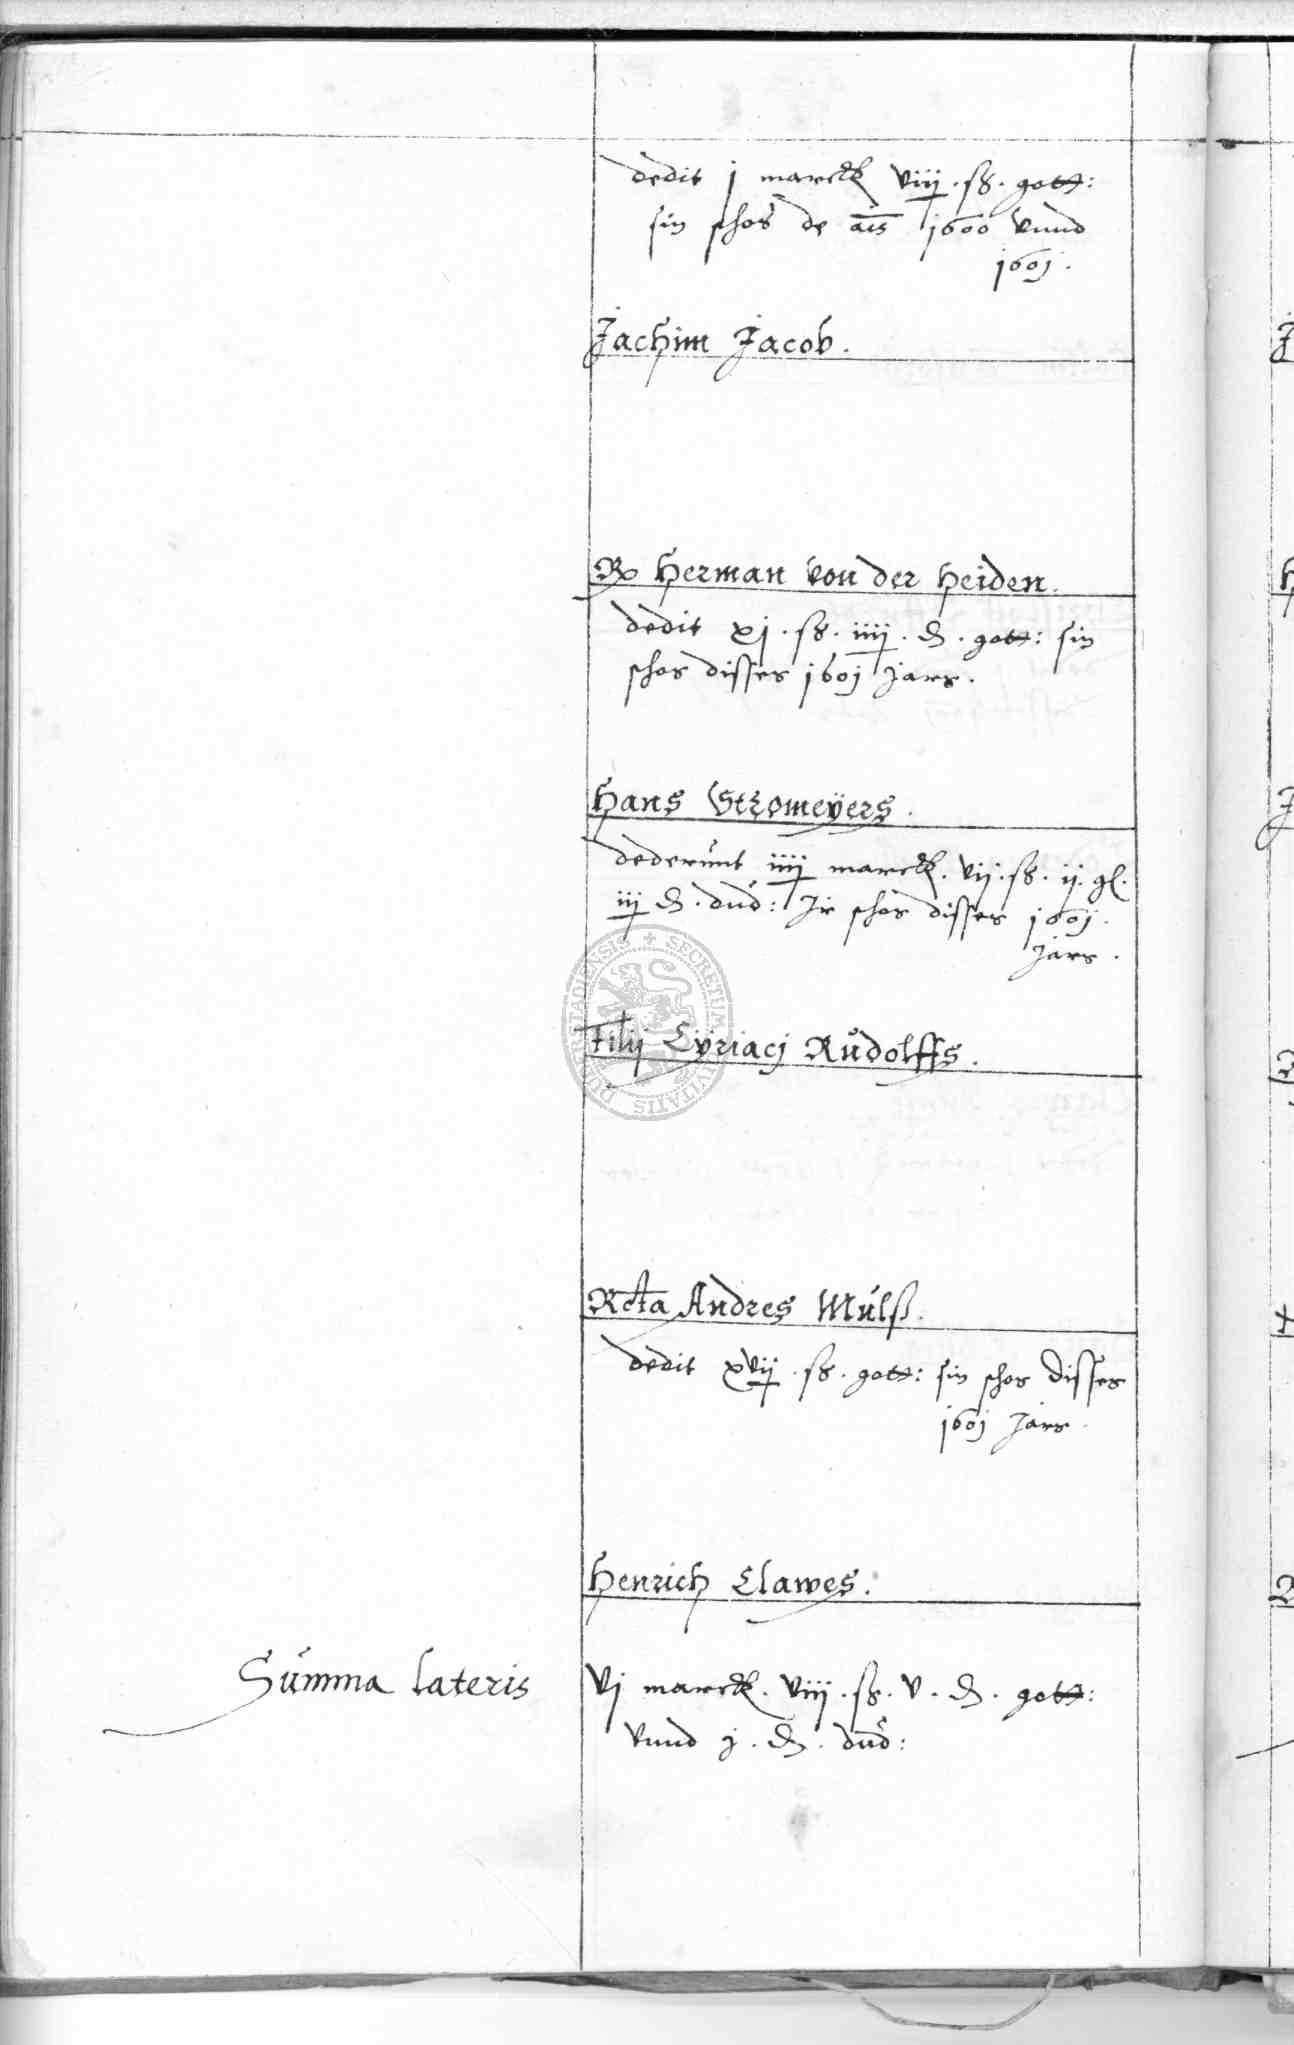 dedit j marck viij . ß . gott:
sin schos de ais 1600 vnnd
1601 .
Jachim Jacob .
Rx Herman von der Heiden .
dedit xj . ß . iiij . d . gott: sin
schos disses 1601 Jars .
Hans Stromeÿers .
dederunt iiij marck . vij . ß . ij . gl .
iij d . dud: Ir schos disses 1601 .
Jars .
Filij Cÿriacj Rudolffs .
Rcta Andres Mulß .
dedit xvij . ß . gott: sin schos disses
1601 Jars .
Henrich Clawes .
Summa lateris vj marck . viij . ß . v . d . gott:
vnnd j . d . dud:
SECRETUM CIVITATIS DUDERSTADIENSIS